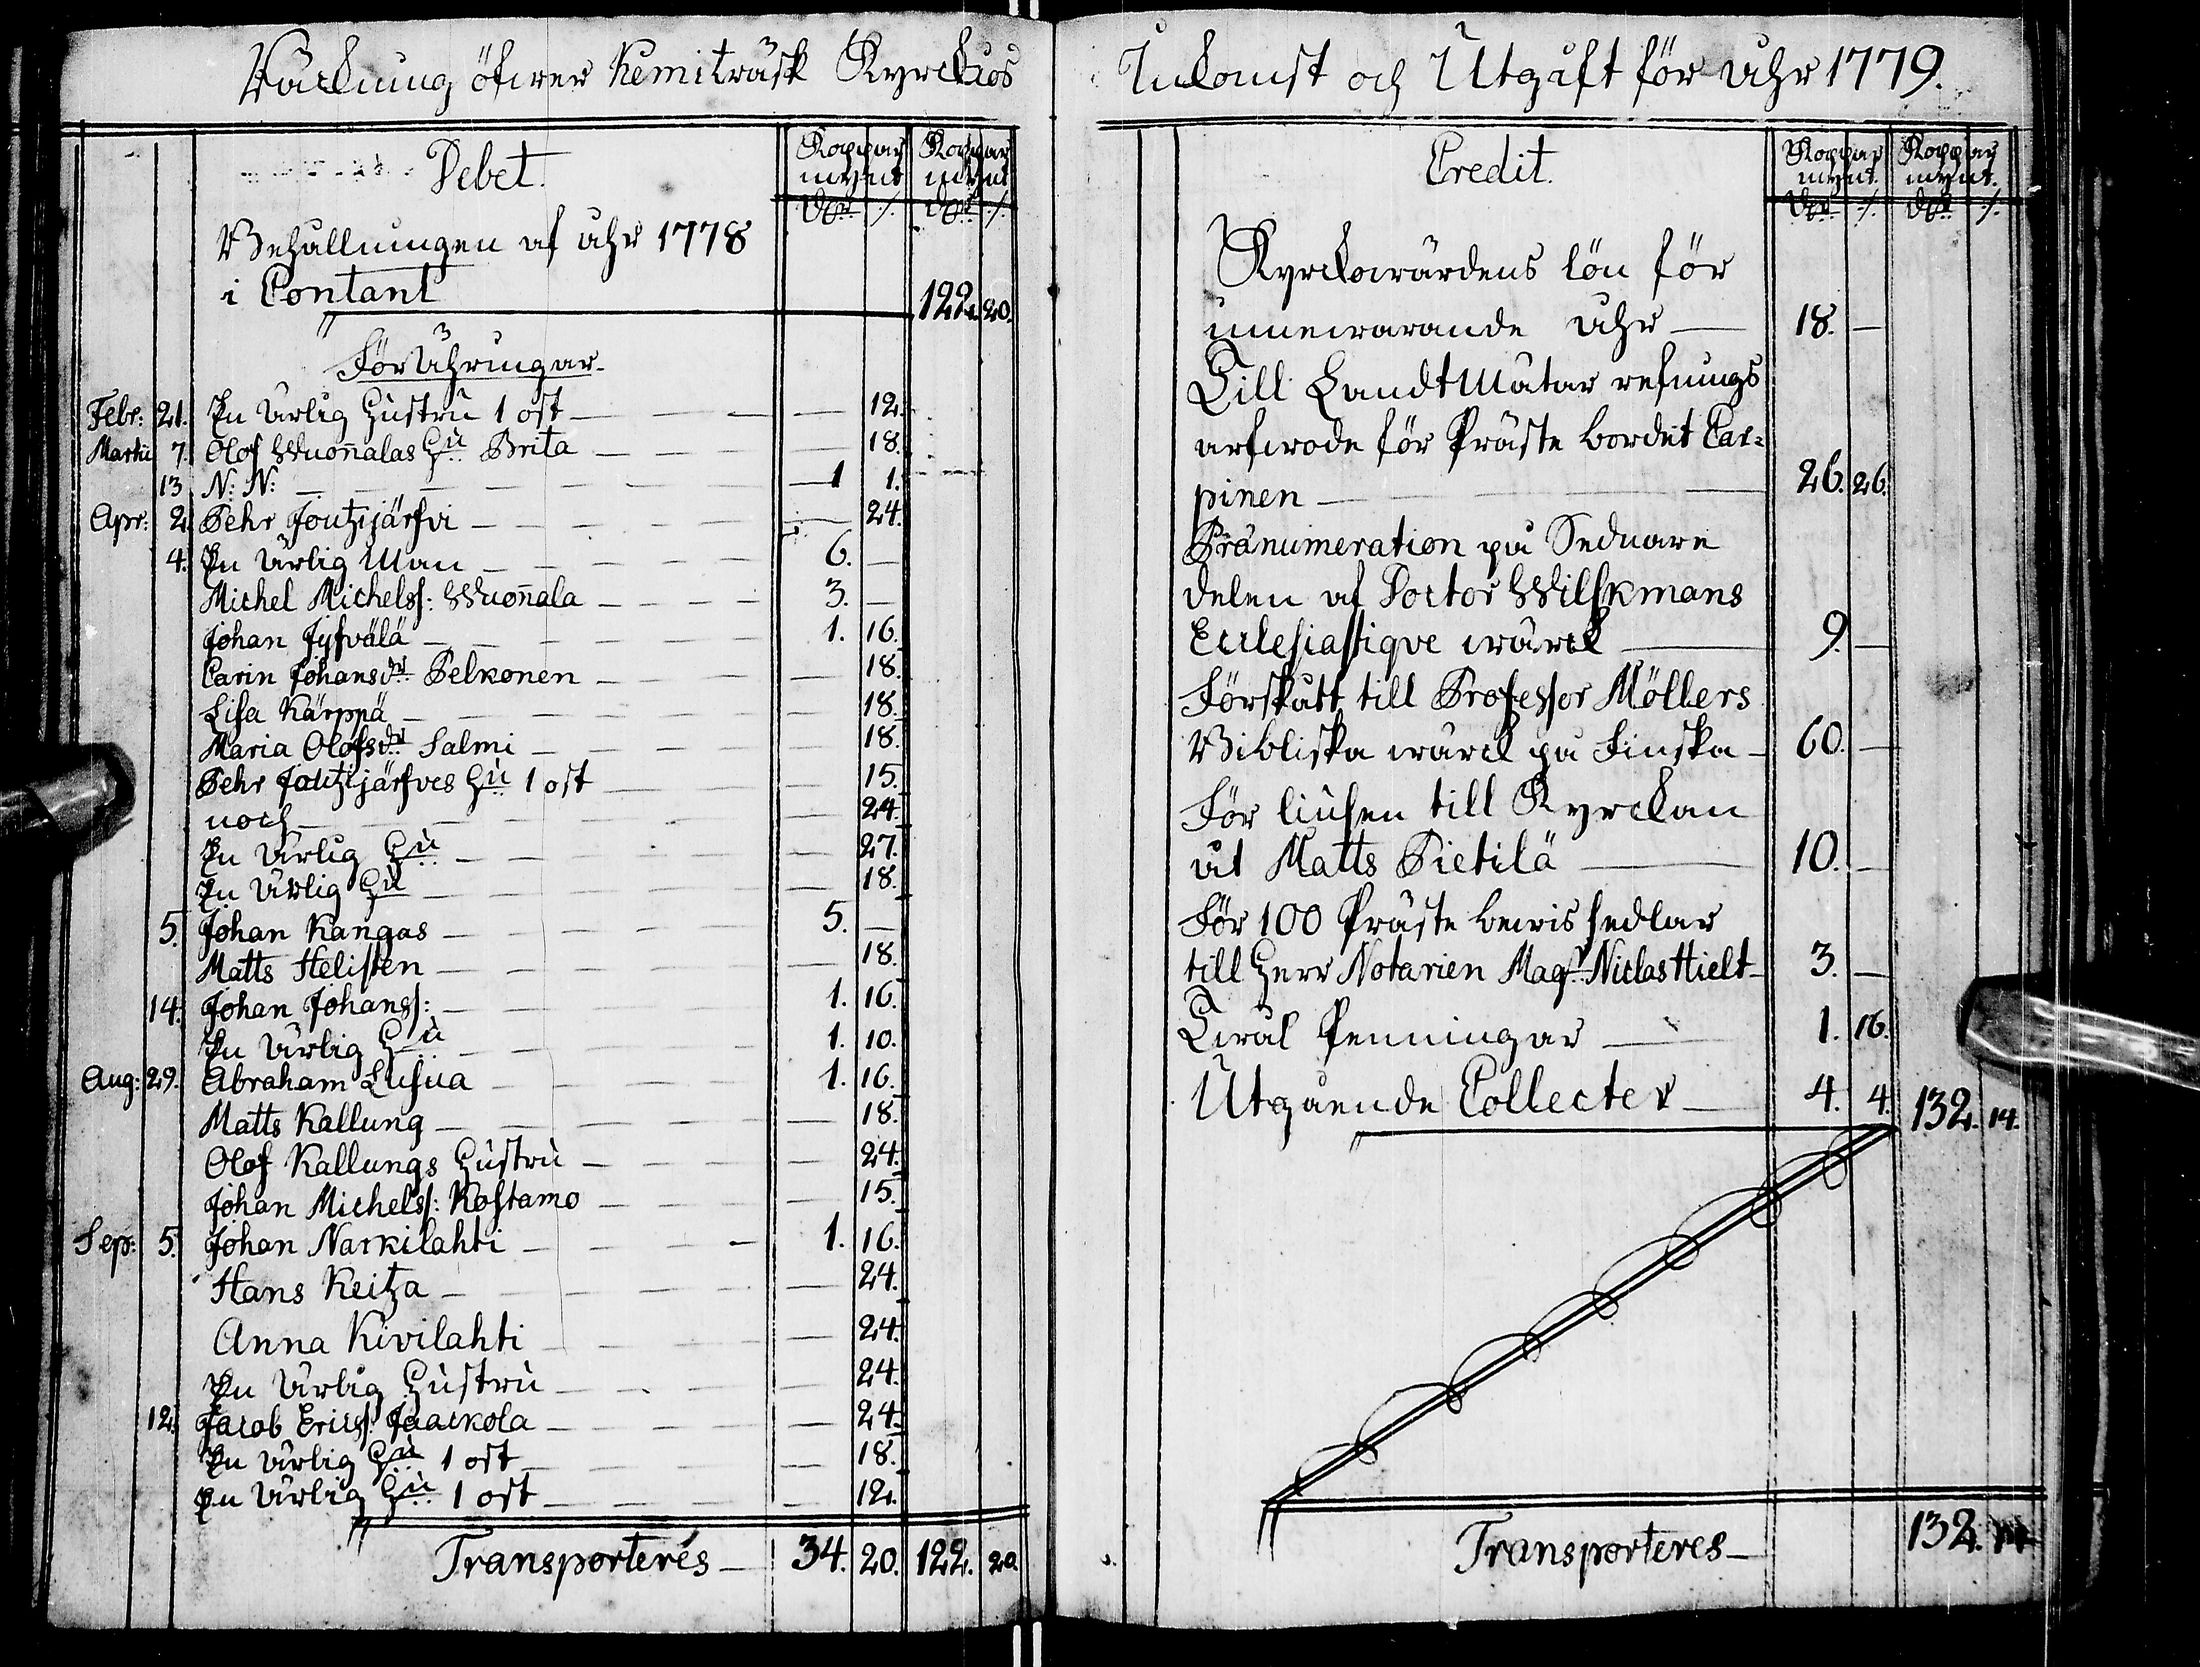 Räckning öfwer Kemiträsk Kyrckios
Debet.
Koppar mynt Koppar mynt
Dr ./. Dr ./.
Behållningen af åhr 1778
i Contant 122. 20.
Förähringar.
Febr: 21. En ärlig Hustru 1 ost — 12.
Martii 7. Olof Wuoñalas Hu Brita — 18.
13 N: N: — 1 1.
Apr: 2. Pehr Joutzijärfvi — 24.
4. En ärlig Man 6. —
Michel Michelss: Wuoñala 3. —
Johan Jyfvälä 1. 16.
Carin Johansdr Pelkonen — 18.
Lisa Kärppä — 18.
Maria Olofsdr Salmi — 18.
Pehr Joutzijärfves Hu 1 ost — 15.
noch — 24.
En ärlig Hu — 27.
En ärlig Hu — 18.
5. Johan Kangas 5. —
Matts Helisten — 18.
14. Johan Johanss: 1. 16.
En ärlig Hu 1. 10.
Aug: 29. Abraham Lusua 1. 16.
Matts Kallung — 18.
Olof Kallungs Hustru — 24.
Johan Michelss: Kostamo — 15.
Sep: 5. Johan Narkilahti 1. 16.
Hans Keitza — 24.
Anna Kivilahti — 24.
En ärlig Hustru — 24.
12. Jacob Ericss: Jaackola — 24.
En ärlig Hu 1 ost — 18.
En ärlig Hu 1 ost — 12.
Transporteres — 34. 20. 122. 20.
Inkomst och Utgift för åhr 1779.
Credit.
Koppar mynt. Koppar mynt.
Dr ./. Dr ./.
Kyrckowärdens lön för
innewarande åhr — 18. —
Till Landtmätar refnings
arfwode för Präste bordet Car=
pinen — 26. 26.
Pränumeration på Sednare
delen af Doctor Wilskmans
Ecclesiastique wärck — 9. —
Förskått till Professor Möllers
Bibliska wärck på Finska — 60. —
För liusen till Kyrckan
åt Matts Pietilä — 10. —
För 100 Präste bewis sedlar
till Herr Notarien Magr Niclas Hielt — 3. —
Qwal Penningar — 1. 16.
Utgående Collecter — 4. 4. 132. 14.
Transporteres — 132. 14.